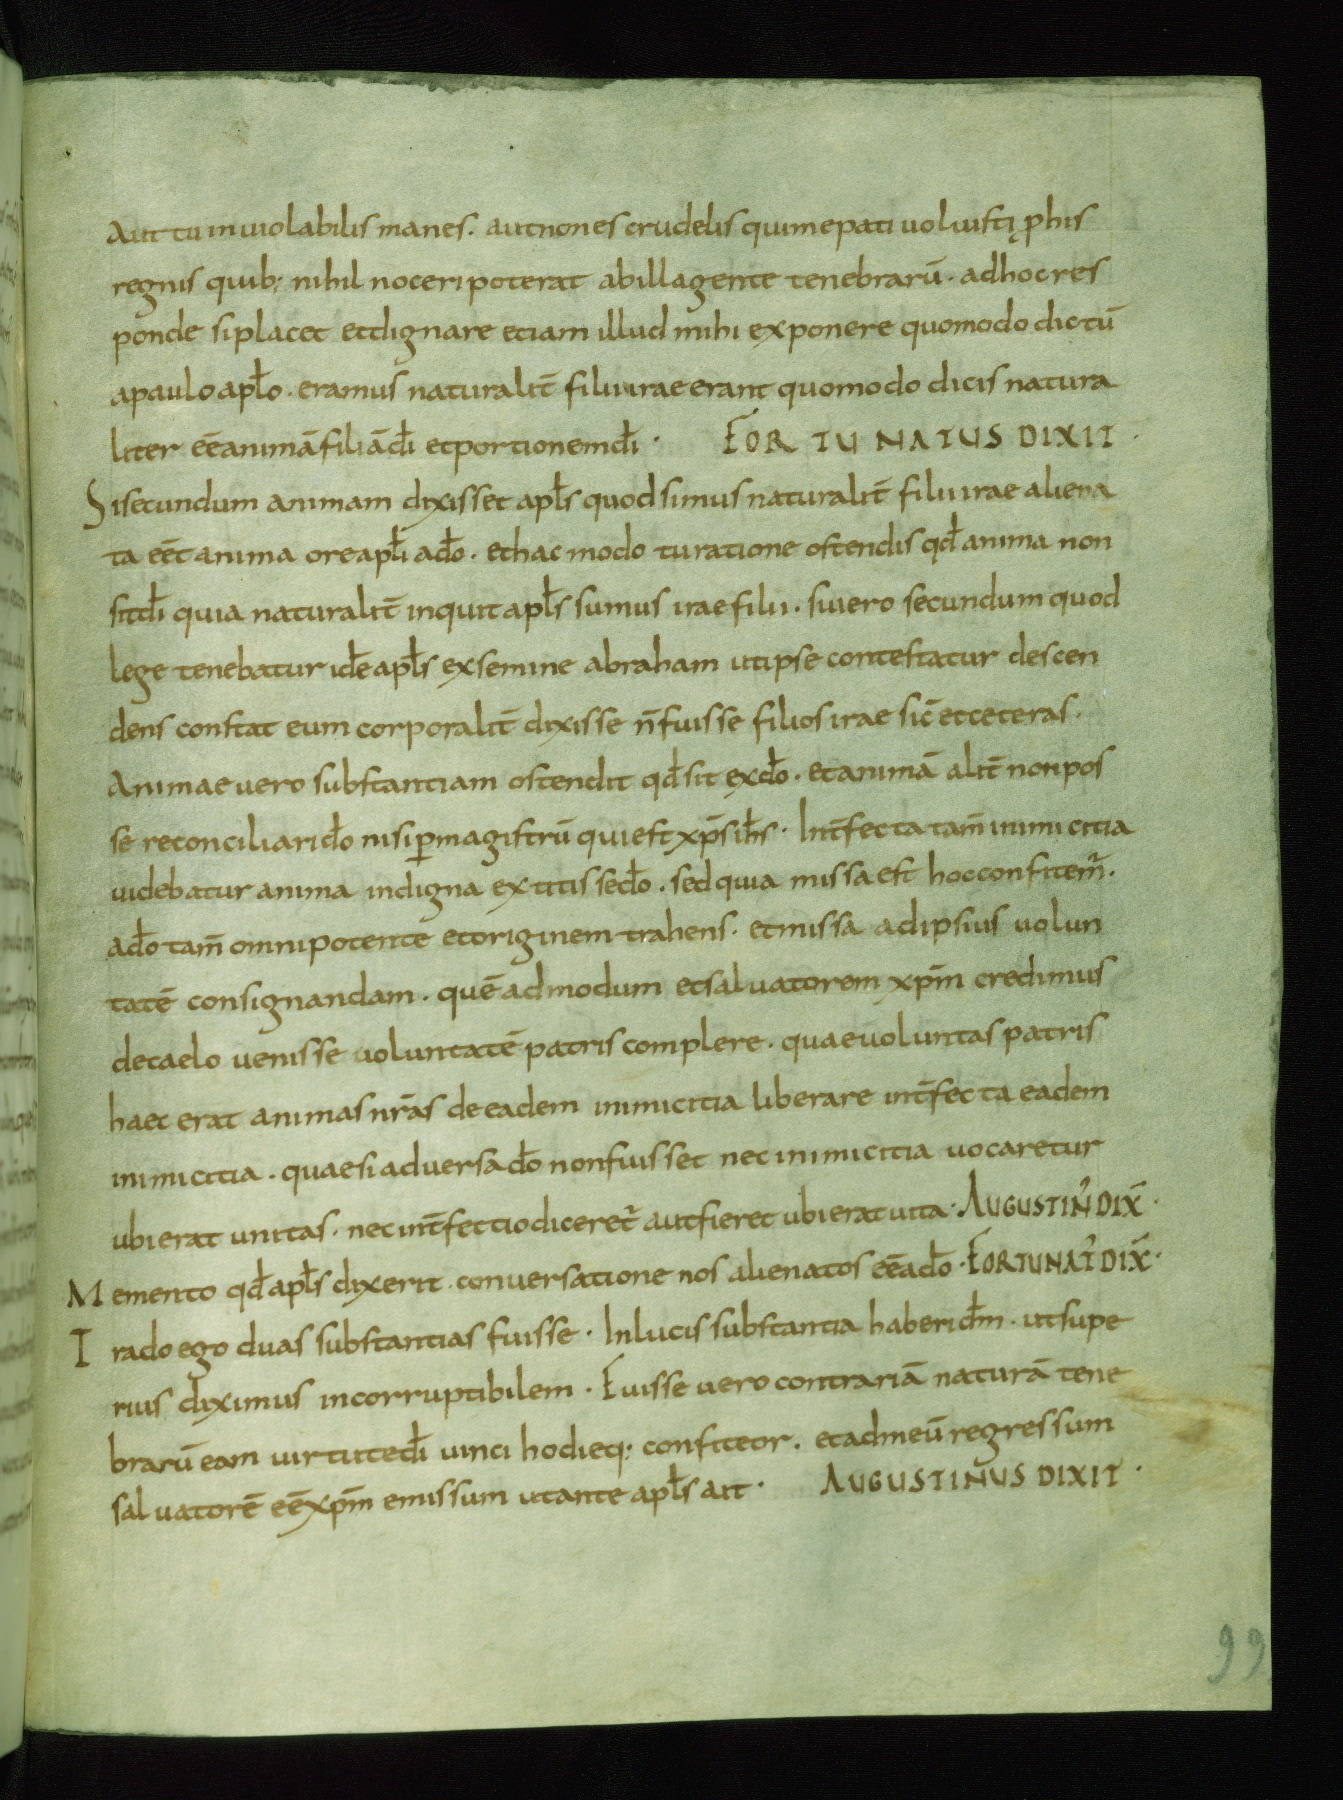 aut tu inuiolabilis manes. aut non es crudelis qui me pati uoluisti ꝓ his
regnis quib; nihil noceri poterat ab illa gente tenebrarū. ad hoc res
ponde si placet et dignare etiam illud mihi exponere quomodo dictū
a paulo apɫo. eramus naturalit̄ filii irae erant quomodo dicis natura
liter eē animā filiā dī et portionem dī. FORTUNATUS DIXIT.
Si secundum animam dixisset apɫs quod simus naturalit̄ filii irae aliena
ta eēt anima ore apɫi a dō. et hac modo tu ratione ostendis qđ anima non
sit dī quia naturalit̄ inquit apɫs sumus irae filii. si uero secundum quod
lege tenebatur idē apɫs ex semine abraham ut ipse contestatur descen
dens constat eum corporalit̄ dixisse n̄ fuisse filios irae sic̄ et ceteras.
Animae uero substantiam ostendit qđ sit ex dō. et animā alit̄ non pos
se reconciliari dō nisi ꝑ magistrū qui est xp̄s ih̄s. Int̄fecta tam̄ inimicitia
uidebatur anima indigna extitisse dō. sed quia missa est hoc confitem̄r.
a dō tam̄ omnipotente et originem trahens. et missa ad ipsius uolun
tatē consignandam. quē ad modum et saluatorem xp̄m credimus
de caelo venisse voluntatē patris complere. quae uoluntas patris
haec erat animas nr̄as de eadem inimicitia liberare int̄fecta eadem
inimicitia. quae si aduersa dō non fuisset nec inimicitia uocaretur
ubi erat unitas. nec int̄fectio diceret̄ aut fieret ubi erat uita. AUGUSTIN' DIX̄.
Memento qđ apɫs dixerit conuersatione nos alienatos eē a dō. FORTUNAT' DIX̄.
Trado ego duas substantias fuisse. In lucis substantia haberi dm̄. ut supe
rius diximus incorruptibilem. Fuisse uero contrariā naturā tene
brarū eam uirtute dī uinci hodieq; confiteor. et ad meū regressum
saluatorē eē xp̄m emissum ut ante apɫs ait. AUGUSTINUS DIXIT.
99